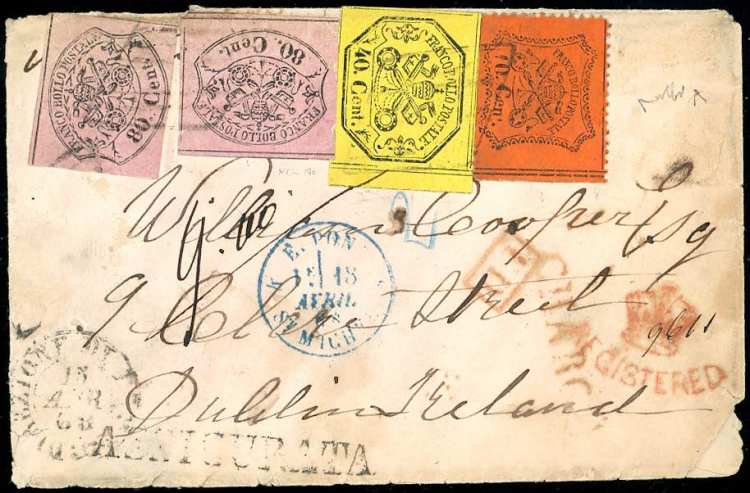 FRANCO BOLLO POSTALE
80. Cent.
FRANCO BOLLO POSTALE
80. Cent.
FRANCO BOLLO POSTALE
40. Cent.
FRANCO BOLLO POSTALE
10. Cent.
William Cooper Esq
E. PON
15
AVRIL
68
MICH
9 Street
9611
REGISTERED
15
APR
68
Dublin Ireland
ASSICURATA